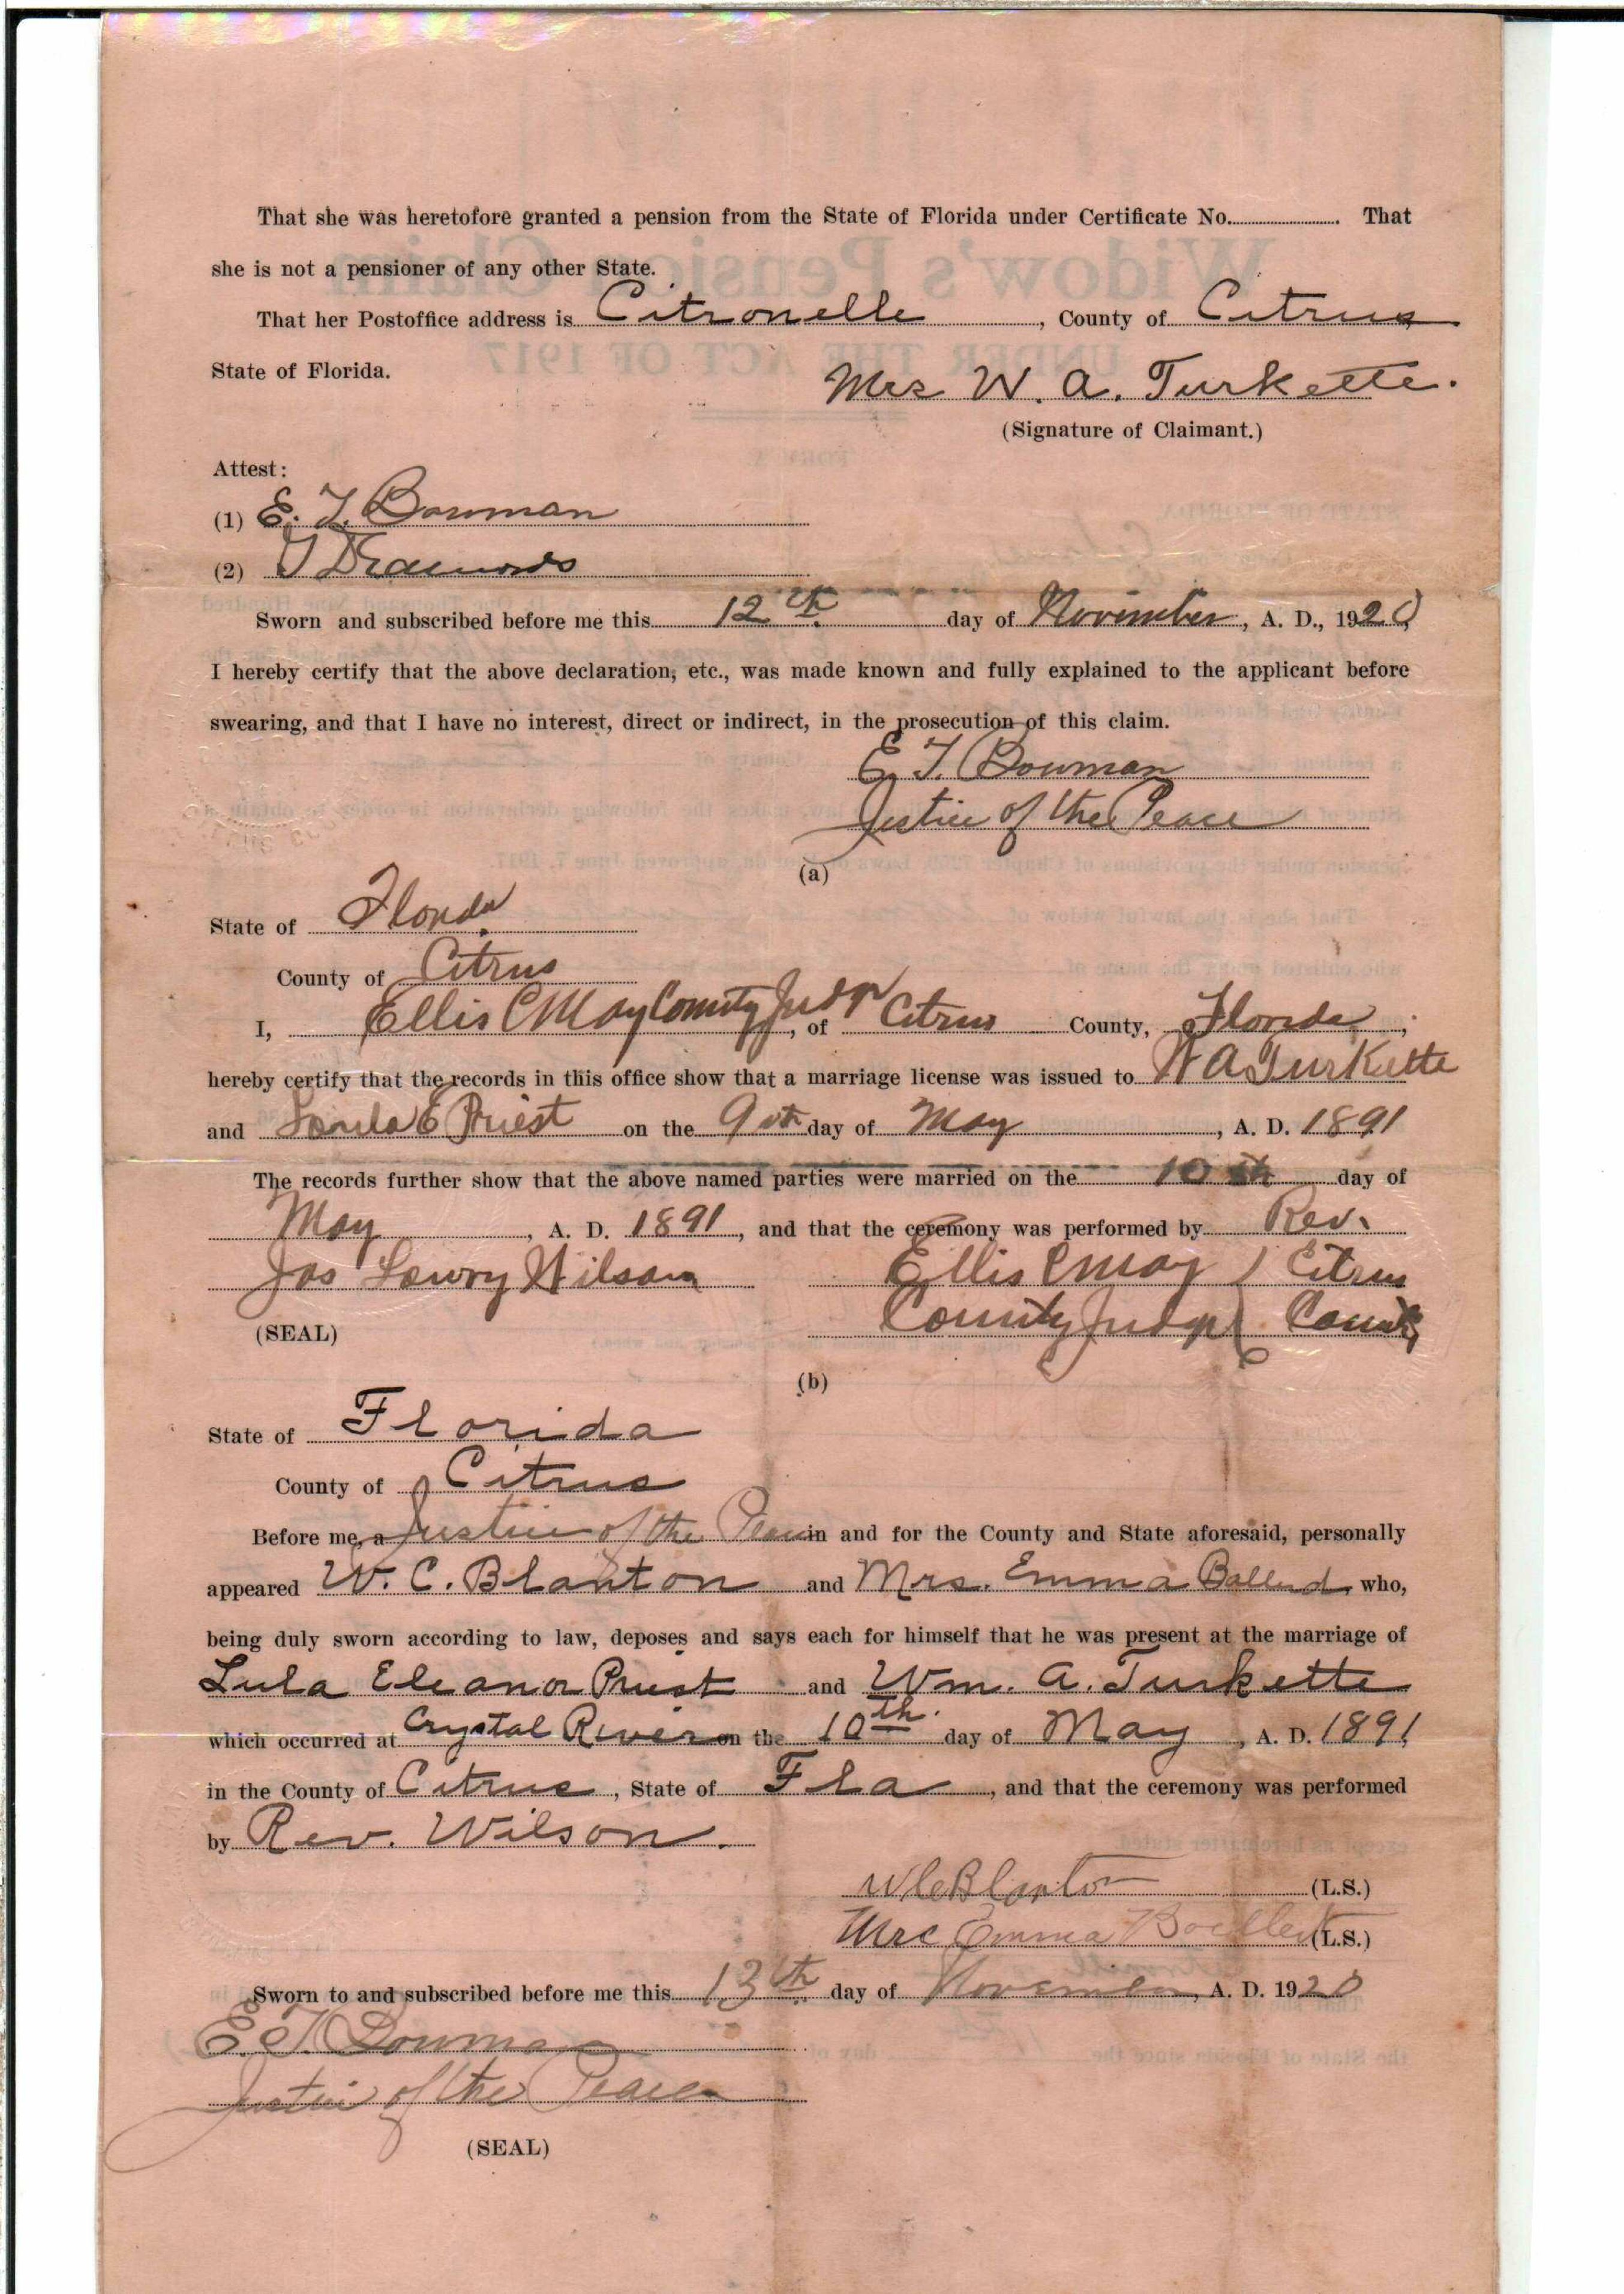 That she was heretofore granted a pension from the State of Florida under Certificate No. That
she is not a pensioner of any other State.
That her Postoffice address is Citronelle, County of Citrus
State of Florida.
Mrs W. A. Turkette.
(Signature of Claimant.)
Attest:
(1) E. T. Bowman
(2)
Sworn and subscribed before me this 12th day of November, A. D., 1920
I hereby certify that the above declaration, etc., was made known and fully explained to the applicant before
swearing, and that I have no interest, direct or indirect, in the prosecution of this claim.
E. T. Bowman
Justice of the Peace
(a)
State of Florida
County of Citrus
I, Ellis C May County Judge, of Citrus County, Florida,
hereby certify that the records in this office show that a marriage license was issued to W A Turkette
and E Priest on the 9th day of May, A. D. 1891
The records further show that the above named parties were married on the 10th day of
May, A. D. 1891, and that the ceremony was performed by Rev.
Jos Lowry Wilson Ellis C May Citrus
(SEAL) County Judge County
(b)
State of Florida
County of Citrus
Before me, a Justice of the Peace in and for the County and State aforesaid, personally
appeared W. C. Blanton and Mrs. Emma, who,
being duly sworn according to law, deposes and says each for himself that he was present at the marriage of
Lula Eleanor Priest and Wm. A. Turkette
which occurred at Crystal River on the 10th. day of May, A. D. 1891
in the County of Citrus, State of Fla, and that the ceremony was performed
by Rev. Wilson.
W C Blanton (L.S.)
Mrs Emma (L.S.)
Sworn to and subscribed before me this 13th day of November, A. D. 1920
E. T. Bowman
Justice of the Peace
(SEAL)